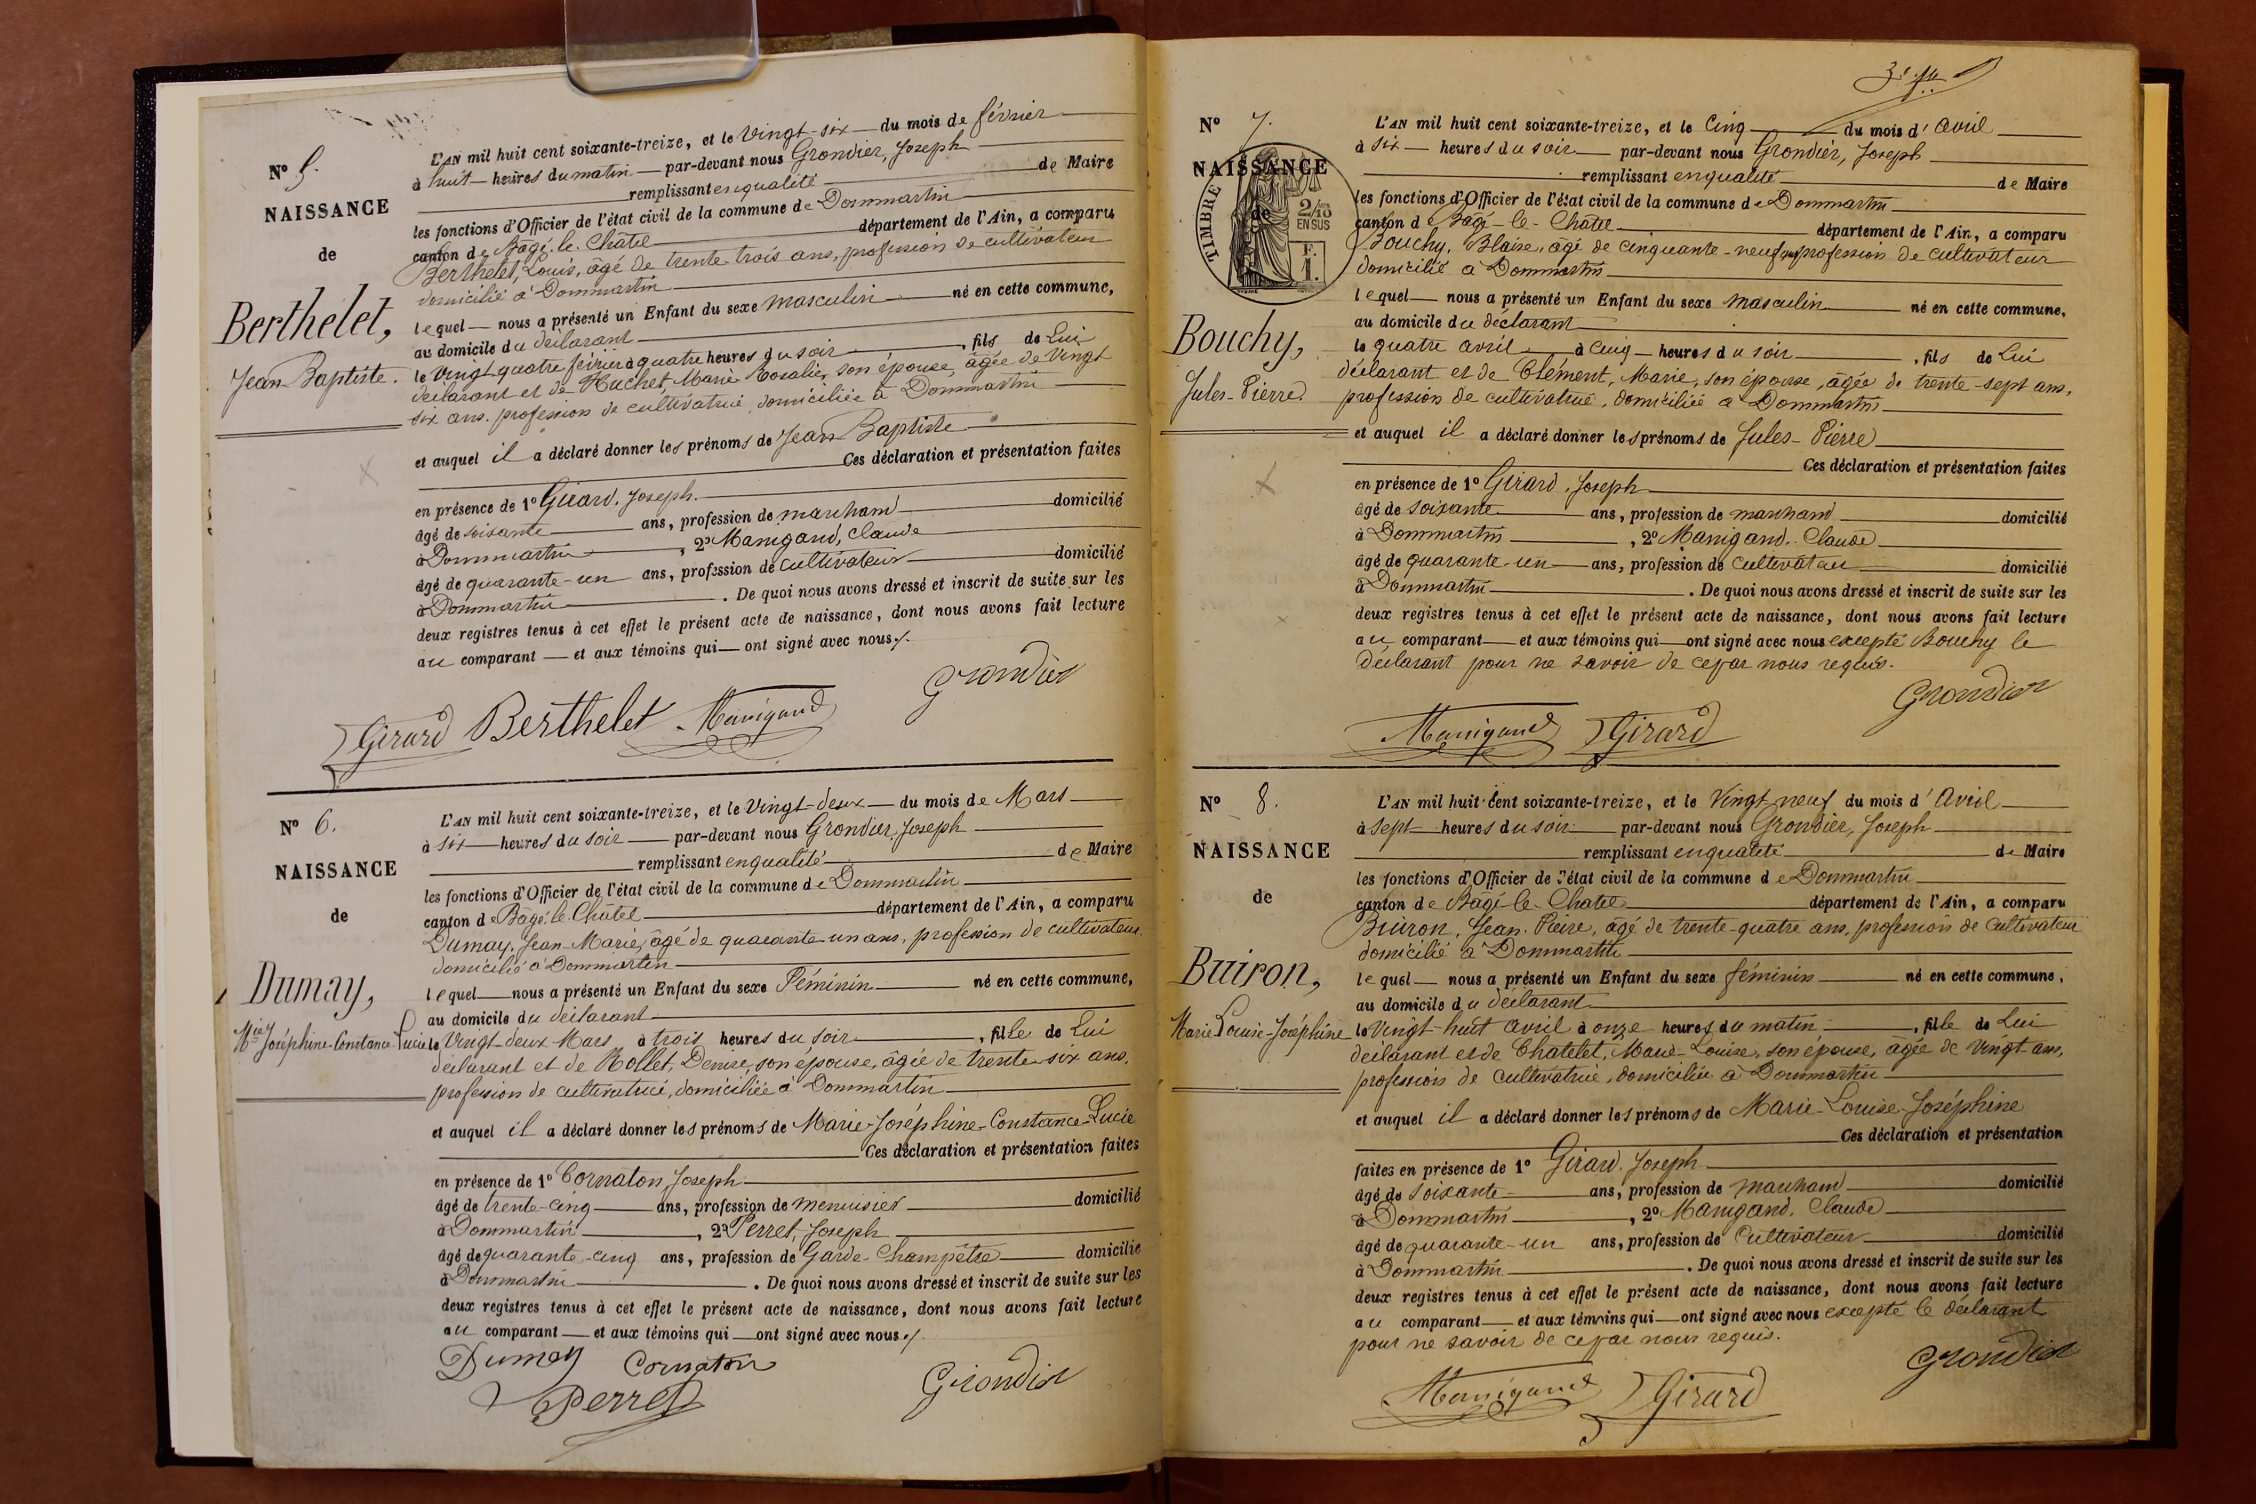 N° 5.
NAISSANCE
de
Berthelet,
Jean Baptiste.
L'AN mil huit cent soixante-treize, et le Vingt-six du mois de février
à huit heures du matin par-devant nous Grondier, Joseph
remplissant en qualité de Maire
les fonctions d'Officier de l'état civil de la commune de Dommartin
canton de Bâgé-le-Châtel département de l'Ain, a comparu
Berthelet, Louis, âgé de trente trois ans, profession de cultivateur
domicilié à Dommartin
lequel nous a présenté un Enfant du sexe masculin né en cette commune,
au domicile du déclarant
le Vingt quatre février à quatre heures du soir, fils de Lui
déclarant et de Huchet, Marie Rosalie, son épouse, âgée de Vingt
six ans. profession de cultivatrice, domiciliée à Dommartin
et auquel il a déclaré donner les prénoms de Jean Baptiste
Ces déclaration et présentation faites
en présence de 1° Girard, Joseph.
âgé de soixante ans, profession de marchand domicilié
à Dommartin, 2° Manigand, Claude
âgé de quarante-un ans, profession de cultivateur domicilié
à Dommartin. De quoi nous avons dressé et inscrit de suite sur les
deux registres tenus à cet effet le présent acte de naissance, dont nous avons fait lecture
au comparant et aux témoins qui ont signé avec nous./.
Girard Berthelet Manigand Grondier
N° 6.
NAISSANCE
de
Dumay,
Mie Joséphine-Constance-Lucie
L'AN mil huit cent soixante-treize, et le Vingt-deux du mois de Mars
à six heures du soir par-devant nous Grondier, Joseph
remplissant en qualité de Maire
les fonctions d'Officier de l'état civil de la commune de Dommartin
canton de Bâgé-le-Châtel département de l'Ain, a comparu
Dumay, Jean-Marie, âgé de quarante-un ans, profession de cultivateur
domicilié à Dommartin
lequel nous a présenté un Enfant du sexe Féminin né en cette commune,
au domicile du déclarant
le Vingt-deux Mars à trois heures du soir, fille de Lui
déclarant et de Rollet, Denise, son épouse, âgée de trente-six ans,
profession de cultivatrice, domiciliée à Dommartin
et auquel il a déclaré donner les prénoms de Marie-Joséphine-Constance-Lucie
Ces déclaration et présentation faites
en présence de 1° Cornaton, Joseph
âgé de trente-cinq ans, profession de menuisier domicilié
à Dommartin, 2° Perret, Joseph
âgé de quarante-cinq ans, profession de Garde-Champêtre domicilié
à Dommartin. De quoi nous avons dressé et inscrit de suite sur les
deux registres tenus à cet effet le présent acte de naissance, dont nous avons fait lecture
au comparant et aux témoins qui ont signé avec nous./.
Dumay Cornaton
Perret Grondier
N° 7.
NAISSANCE
de
TIMBRE
2/10 EN SUS
F. 1.
Bouchy,
Jules-Pierre.
L'AN mil huit cent soixante-treize, et le Cinq du mois d'avril
à six heures du soir par-devant nous Grondier, Joseph
remplissant en qualité de Maire
les fonctions d'Officier de l'état civil de la commune de Dommartin
canton de Bâgé-le-Châtel département de l'Ain, a comparu
Bouchy, Blaise, âgé de cinquante-neuf ans profession de cultivateur
domicilié à Dommartin
lequel nous a présenté un Enfant du sexe masculin né en cette commune,
au domicile du déclarant
le quatre avril à cinq heures du soir, fils de Lui
déclarant et de Clément, Marie, son épouse, âgée de trente-sept ans,
profession de cultivatrice, domiciliée à Dommartin
et auquel il a déclaré donner les prénoms de Jules-Pierre
Ces déclaration et présentation faites
en présence de 1° Girard, Joseph
âgé de soixante ans, profession de marchand domicilié
à Dommartin, 2° Manigand, Claude
âgé de quarante-un ans, profession de cultivateur domicilié
à Dommartin. De quoi nous avons dressé et inscrit de suite sur les
deux registres tenus à cet effet le présent acte de naissance, dont nous avons fait lecture
au comparant et aux témoins qui ont signé avec nous excepté Bouchy le
déclarant pour ne savoir de ce par nous requis.
Manigand Girard Grondier
N° 8.
NAISSANCE
de
Buiron,
Marie Louise-Joséphine
L'AN mil huit cent soixante-treize, et le Vingt neuf du mois d'avril
à sept heures du soir par-devant nous Grondier, Joseph
remplissant en qualité de Maire
les fonctions d'Officier de l'état civil de la commune de Dommartin
canton de Bâgé-le-Châtel département de l'Ain, a comparu
Buiron, Jean-Pierre, âgé de trente-quatre ans, profession de cultivateur
domicilié à Dommartin
lequel nous a présenté un Enfant du sexe féminin né en cette commune,
au domicile du déclarant
le Vingt-huit avril à onze heures du matin, fille de Lui
déclarant et de Chatelet, Marie-Louise, son épouse, âgée de Vingt ans,
profession de cultivatrice, domiciliée à Dommartin
et auquel il a déclaré donner les prénoms de Marie-Louise-Joséphine
Ces déclaration et présentation
faites en présence de 1° Girard, Joseph
âgé de soixante ans, profession de marchand domicilié
à Dommartin, 2° Manigand, Claude
âgé de quarante-un ans, profession de cultivateur domicilié
à Dommartin. De quoi nous avons dressé et inscrit de suite sur les
deux registres tenus à cet effet le présent acte de naissance, dont nous avons fait lecture
au comparant et aux témoins qui ont signé avec nous excepté le déclarant
pour ne savoir de ce par nous requis.
Manigand Girard Grondier